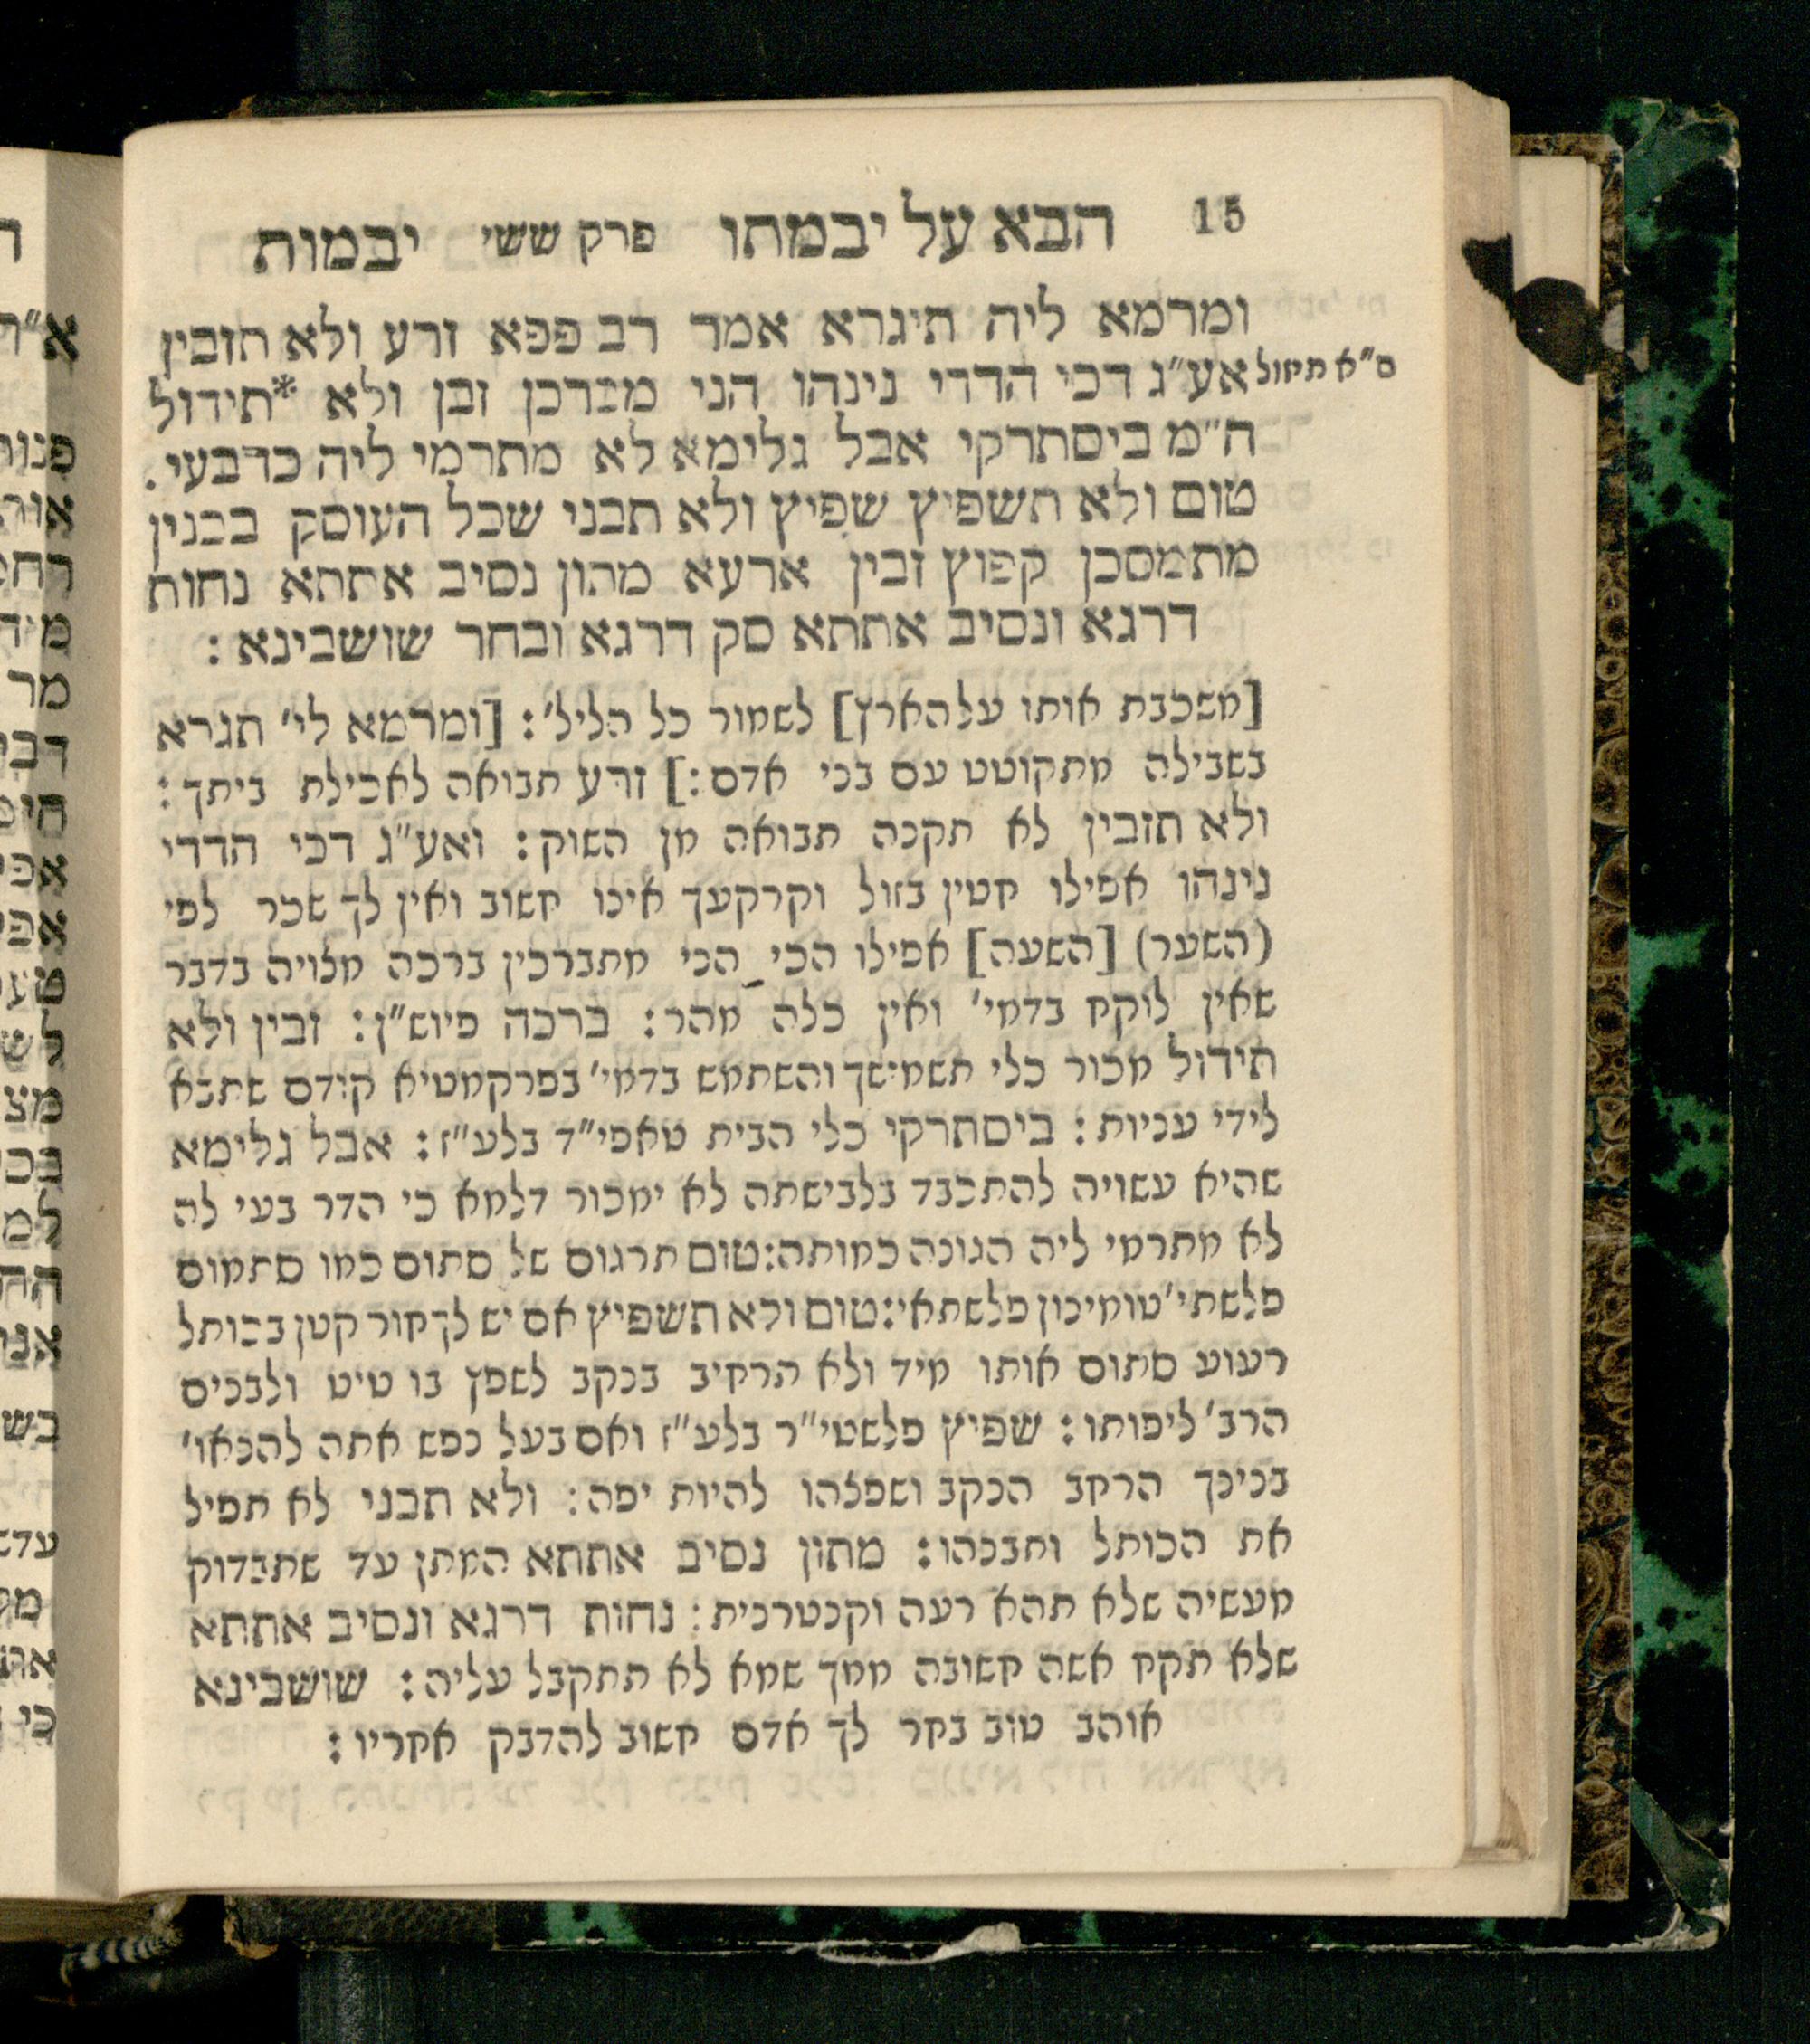 15 הבא על יבמתו פרק ששי יבמות
ומרמא ליה תיגרא אמר רב פפא זרע ולא תזבין
ס״א תיזול
אע״ג דכי הדדי נינהו הני מברכן זבן ולא *תידול
ה״מ ביסתרקי אבל גלימא לא מתרמי ליה כדבעי.
טום ולא תשפיץ שפיץ ולא תבני שכל העוסק בבנין
מתמסכן קפוץ זבין ארעא מתון נסיב אתתא נחות
דרגא ונסיב אתתא סק דרגא ובחר שושבינא :
[משכבת אותו על הארץ] לשמור כל הליל׳ : [ומרמא לי׳ תגרא
בשבילה מתקוטט עם בני אדם :] זרע תבואה לאכילת ביתך :
ולא תזבין לא תקנה תבואה מן השוק : ואע״ג דכי הדדי
נינהו אפילו חטין בזול וקרקעך אינו חשוב ואין לך שכר לפי
(השער) [השעה] אפילו הכי הני מתברכין ברכה מצויה בדבר
שאין לוקח בדמי׳ ואין כלה מהר : ברכה פיוש״ן : זבין ולא
תידול מכור כלי תשמישך והשתמש בדמי׳ בפרקמטיא קודם שתבא
לידי עניות : ביסתרקי כלי הבית טאפי״ד בלע״ז : אבל גלימא
שהיא עשויה להתכבד בלבישתה לא ימכור דלמא כי הדר בעי לה
לא מתרמי ליה הגונה כמותה : טום תרגום של סתום כמו סתמום
פלשתי׳ טומינון פלשתאי : טום ולא תשפיץ אם יש לך חור קטן בכותל
רעוע סתום אותו מיד ולא הרחיב בנקב לשפץ בו טיט ולבנים
הרב׳ ליפותו : שפיץ פלשטי״ר בלע״ז ואם בעל נפש אתה להנאו׳
בניינך הרחב הנקב ושפצהו להיות יפה : ולא תבני לא תפיל
את הכותל ותבנהו : מתון נסיב אתתא המתן עד שתבדוק
מעשיה שלא תהא רעה וקנטרנית : נחות דרגא ונסיב אתתא
שלא תקח אשה חשובה ממך שמא לא תתקבל עליה : שושבינא
אוהב טוב בחר לך אדם חשוב להדבק אחריו :